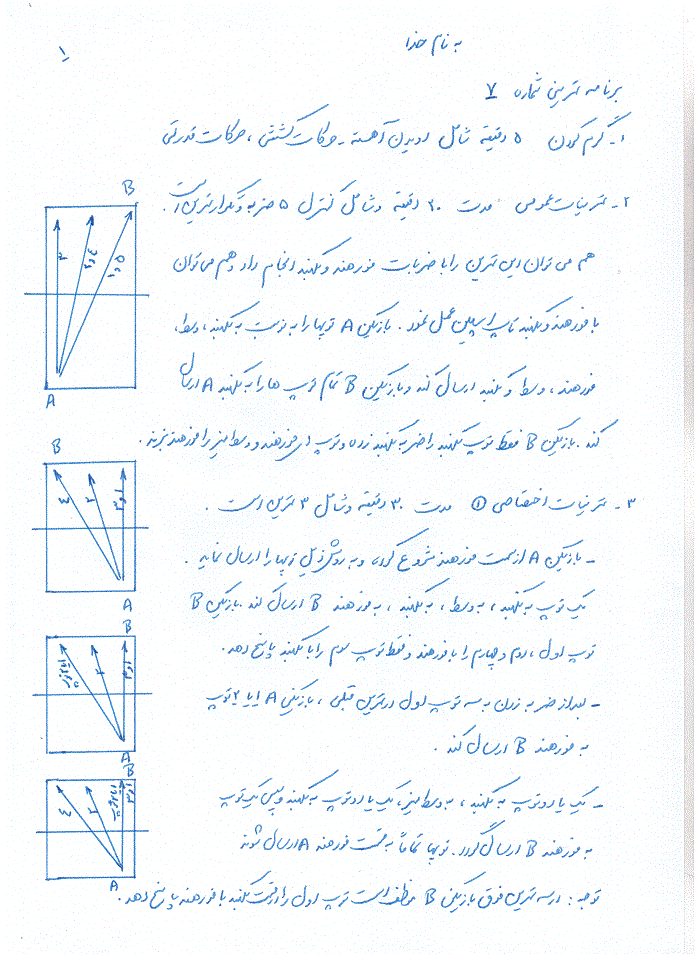 به نام خدا
۱
برنامه تمرینی شماره ۷
۱- گرم کردن ۵ دقیقه شامل دویدن آهسته - حرکات کششی ، حرکات قدرتی
۲- تمرینات عمومی مدت ۲۰ دقیقه و شامل کنترل ۵ ضربه و تکرار تمرین است.
هم می توان این تمرین را با ضربات فورهند و بکهند انجام داد و هم می توان
با فورهند و بکهند تاپ اسپین عمل نمود . بازیکن A توپها را به نوبت به بکهند ، وسط ،
فورهند ، وسط و بکهند ارسال کند و بازیکن B تمام توپ ها را به بکهند A ارسال
کند . بازیکن B فقط توپ بکهند را ضربه بکهند زده و توپ های فورهند و وسط میز را فورهند بزند .
۳- تمرینات اختصاصی ① مدت ۳۰ دقیقه و شامل ۳ تمرین است .
- بازیکن A از سمت فورهند شروع کرده و به روش ذیل توپها را ارسال نماید .
یک توپ به بکهند ، به وسط ، به بکهند ، به فورهند B ارسال کند . بازیکن B
توپ اول ، دوم و چهارم را با فورهند و فقط توپ سوم را با بکهند پاسخ دهد .
- بعد از ضربه زدن به سه توپ اول در تمرین قبلی ، بازیکن A ۱ یا ۲ توپ
به فورهند B ارسال کند .
- یک یا دو توپ به بکهند ، به وسط میز ، یک یا دو توپ به بکهند و سپس یک توپ
به فورهند B ارسال گردد . توپها تماماً به قسمت فورهند A ارسال شوند
توجه : در سه تمرین فوق بازیکن B موظف است توپ اول را از قسمت بکهند با فورهند پاسخ دهد .
B
۳
۲ و ٤
۱ و ۵
A
B
٤
۲
۱ و ۳
A
B
۲
۱ و ۳
A
B
٤
۲
A